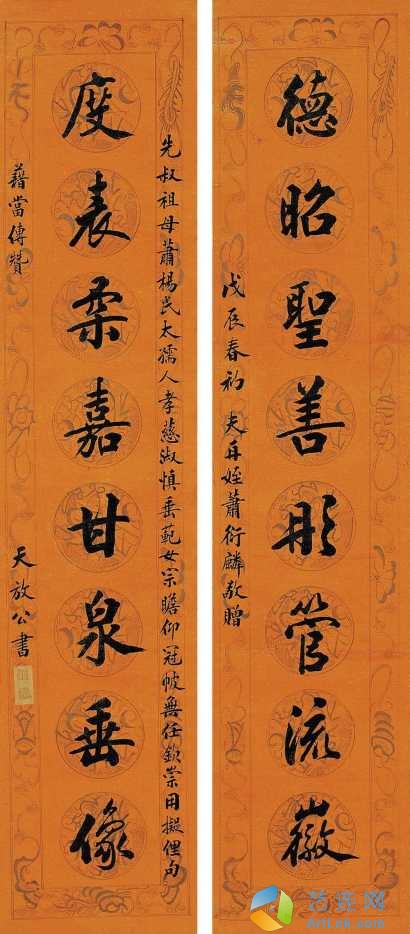 德昭聖善彤管流徽
戊辰春初 夫再姪蕭衍麟敬贈
先叔祖母蕭楊氏太孺人孝慈淑慎垂範女宗瞻仰冠帔無任欽崇用擬俚句
度表柔嘉甘泉垂像
藉當傳贊
天放公書
艺连网
Artlk.com